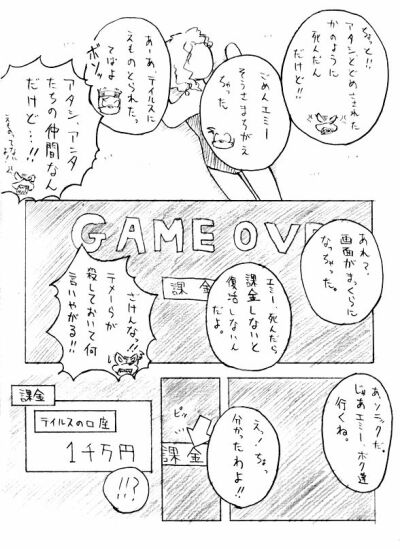 ちょっと!!
アタシとどめさされた
かのように
死んだん
だけど!!
ごめんエミー
そうさまちがえ
ちゃった
あーあ、テイルスに
えものとられたっ
てばよ
ボソッ
アタシ、アンタ
たちの仲間なん
だけど…!!
GAME OVE
あれ?、
画面がまっくらに
なっちゃった。
エミー、死んだら
課金しないと
復活しないん
だよ。
課金
ざけんなっ!!
テメーらが
殺しておいて何
言いやがる!!
あ、ソニックだ。
じゃあエミー、ボク達
行くね。
えっ、ちょっ
分かったわよ!!
ピッ
課金
課金
テイルスの口座
1千万円
!!?